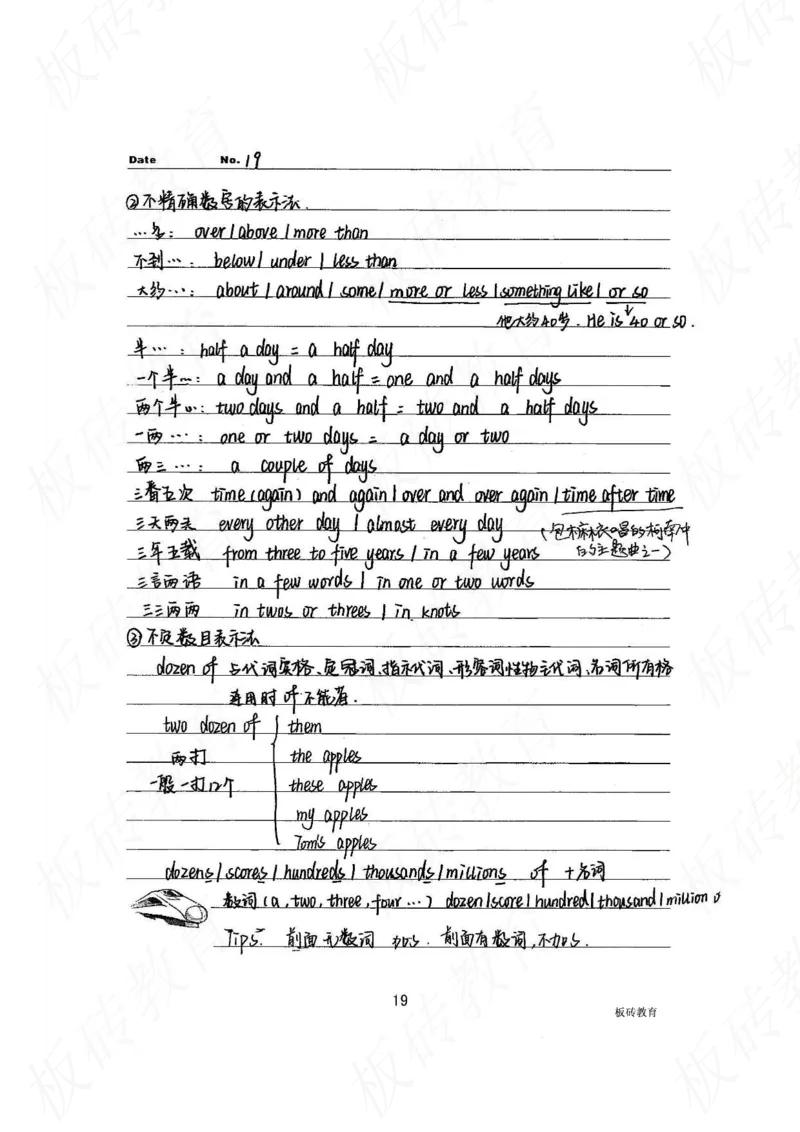 Date No. 19
②不精确数字的表示法.
…多: over / above / more than
不到…: below / under / less than
大约…: about / around / some / more or less / something like / or so
他大约40岁. He is 40 or so.
半…: half a day = a half day
一个半…: a day and a half = one and a half days
两个半…: two days and a half = two and a half days
一两…: one or two days = a day or two
两三…: a couple of days
三番五次 time (again) and again / over and over again / time after time
三天两天 every other day / almost every day (包木麻衣唱的柯南冲
三年五载 from three to five years / in a few years 的主题曲之一)
三言两语 in a few words / in one or two words
三三两两 in twos or threes / in knots
③不定数目表示法
dozen of 与代词宾格、定冠词、指示代词、形容词性物主代词、名词所有格
连用时 of 不能省.
two dozen of them
两打 the apples
一般一打12个 these apples
my apples
Tom's apples
dozens / scores / hundreds / thousands / millions of + 名词
数词 (a, two, three, four …) dozen / score / hundred / thousand / million
Tips: 前面无数词 加s. 前面有数词,不加s.
19
板砖教育